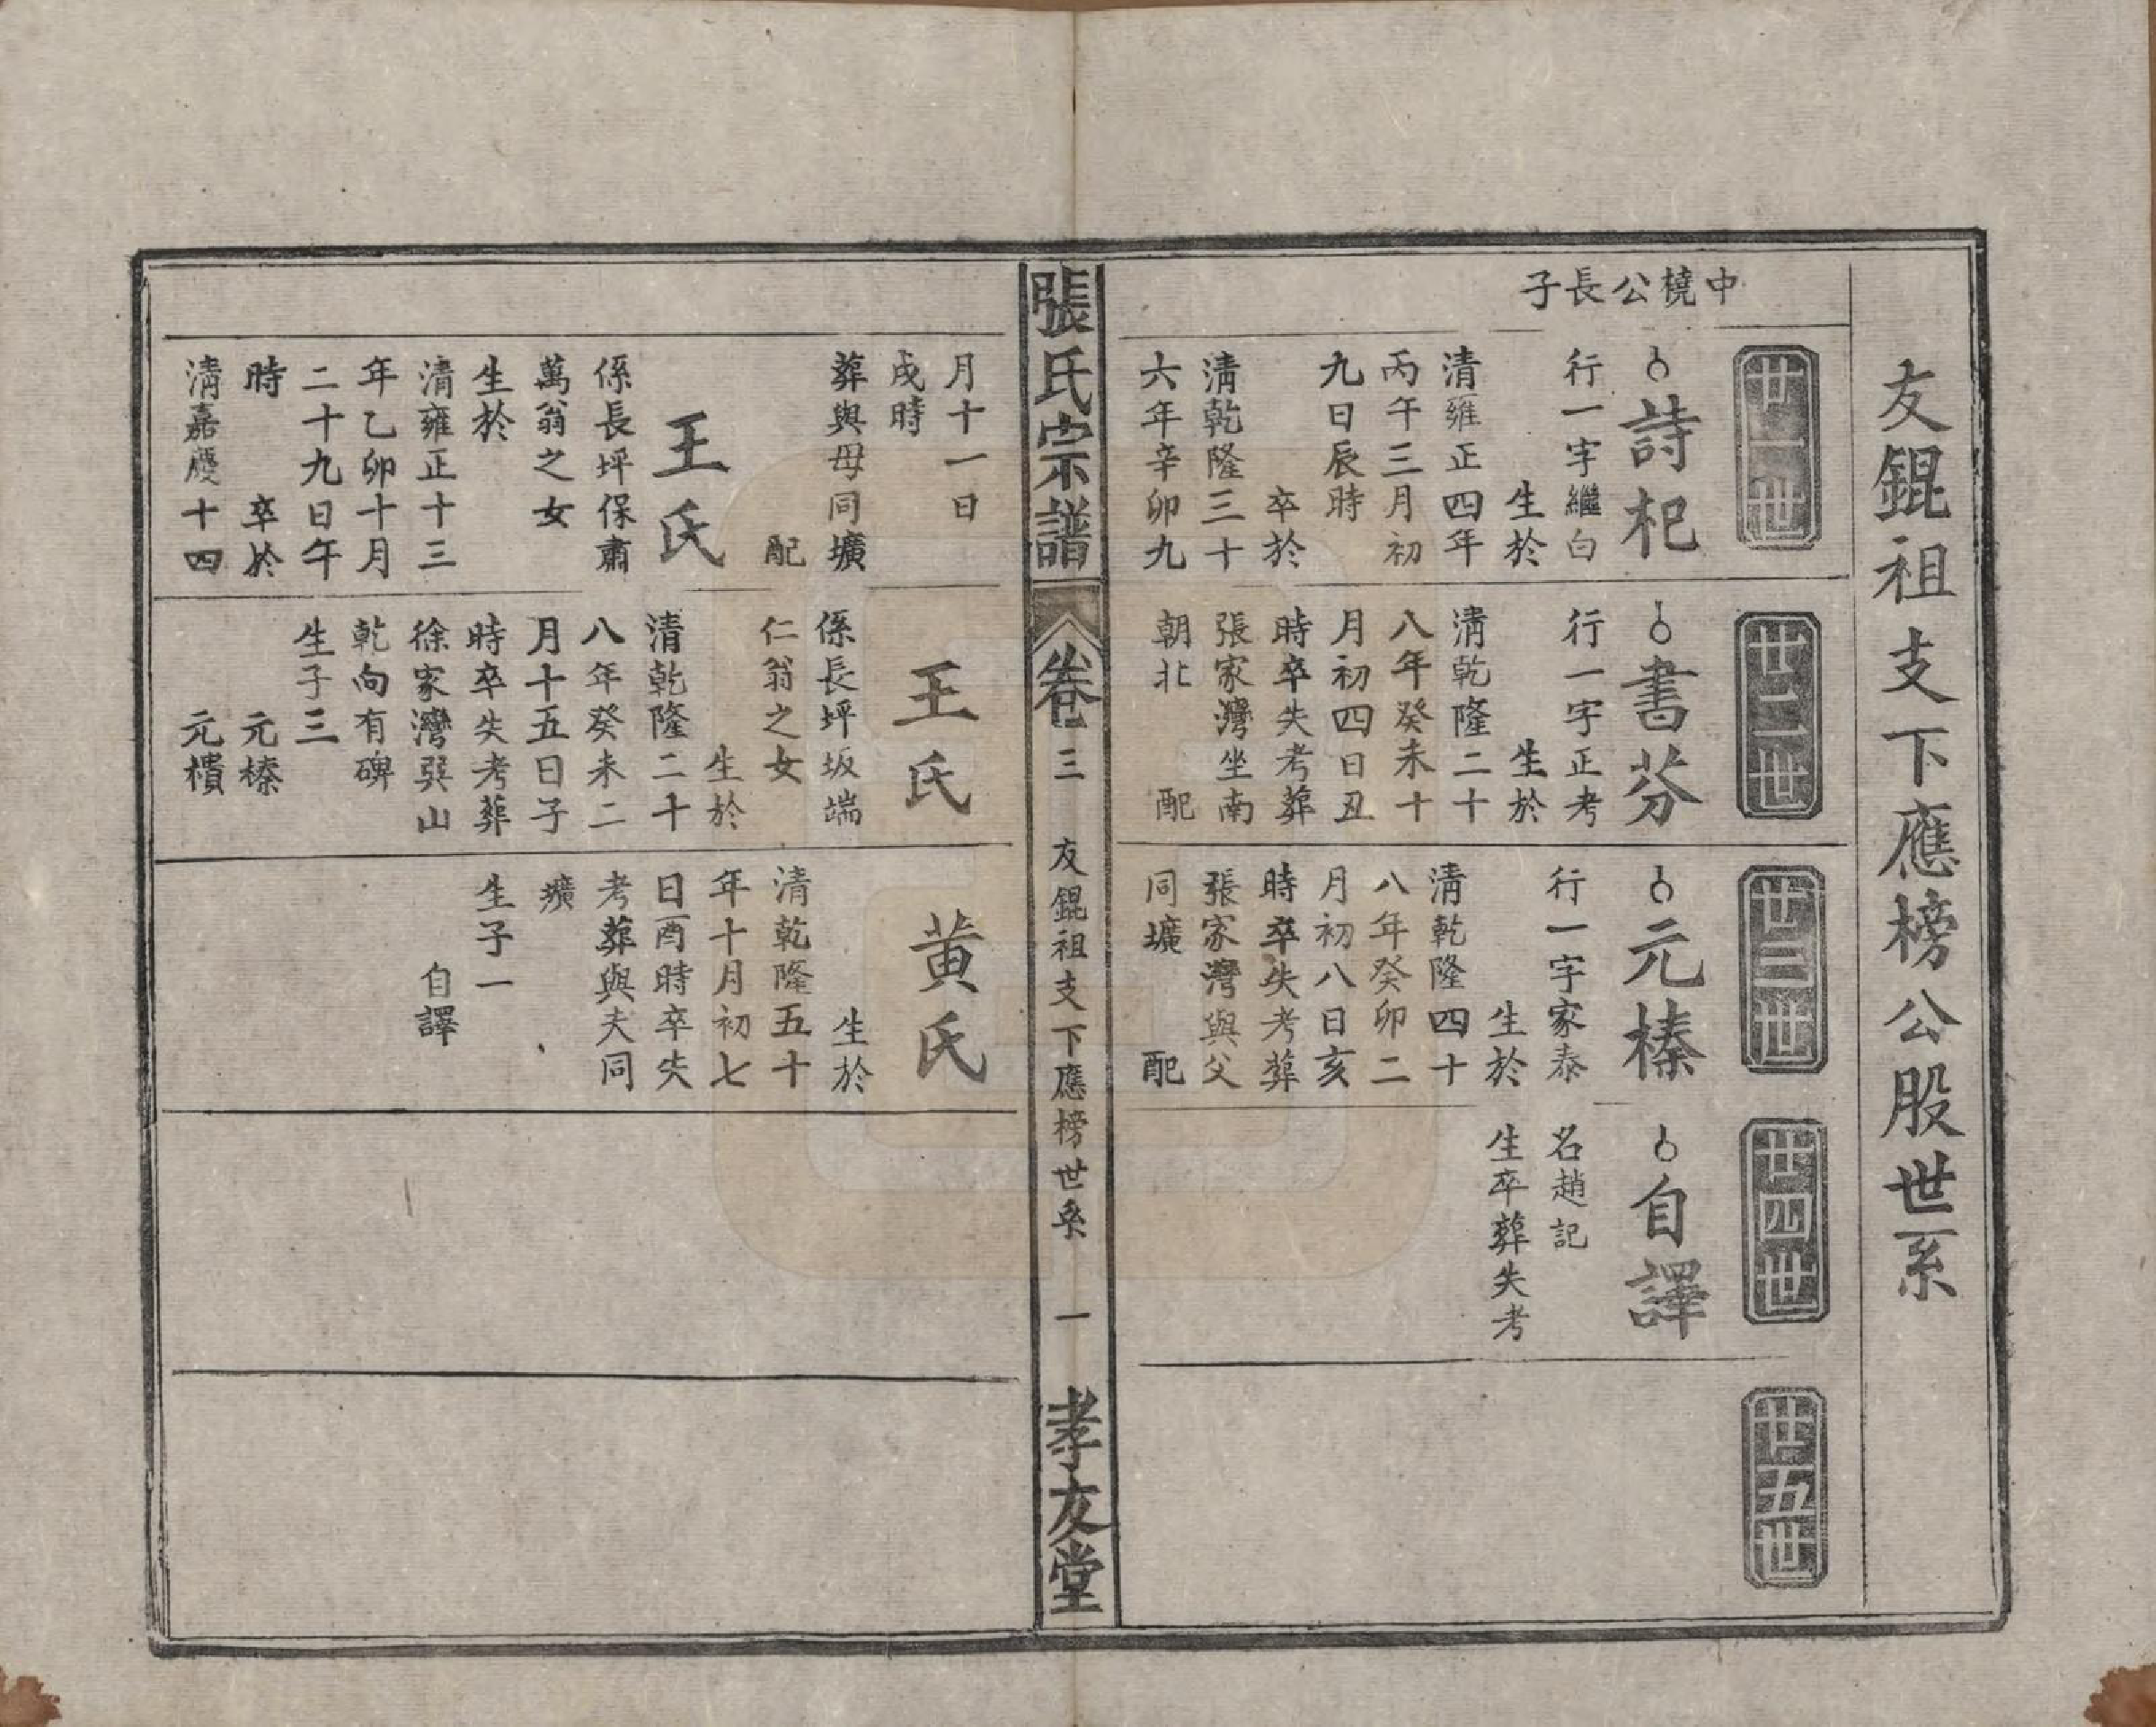 友錕祖支下應榜公股世系
中橈公長子
廿一世
詩杞
行一字繼白
生於
清雍正四年
丙午三月初
九日辰時
卒於
清乾隆三十
六年辛卯九
廿二世
書芬
行一字正考
生於
清乾隆二十
八年癸未十
月初四日丑
時卒失考葬
張家灣坐南
朝北 配
廿三世
元榛
行一字家泰
生於
清乾隆四十
八年癸卯二
月初八日亥
時卒失考葬
張家灣與父
同壙 配
廿四世
自譯
名趙記
生卒葬失考
廿五世
張氏宗譜 卷三 友錕祖支下應榜世系 一 孝友堂
月十一日
戌時
葬與母同壙
配
王氏
係長坪保肅
萬翁之女
生於
清雍正十三
年乙卯十月
二十九日午
時 卒於
清嘉慶十四
王氏
係長坪坂端
仁翁之女
生於
清乾隆二十
八年癸未二
月十五日子
時卒失考葬
徐家灣巽山
乾向有碑
生子三
元榛
元樻
黄氏
生於
清乾隆五十
年十月初七
日酉時卒失
考葬與夫同
壙
生子一
自譯